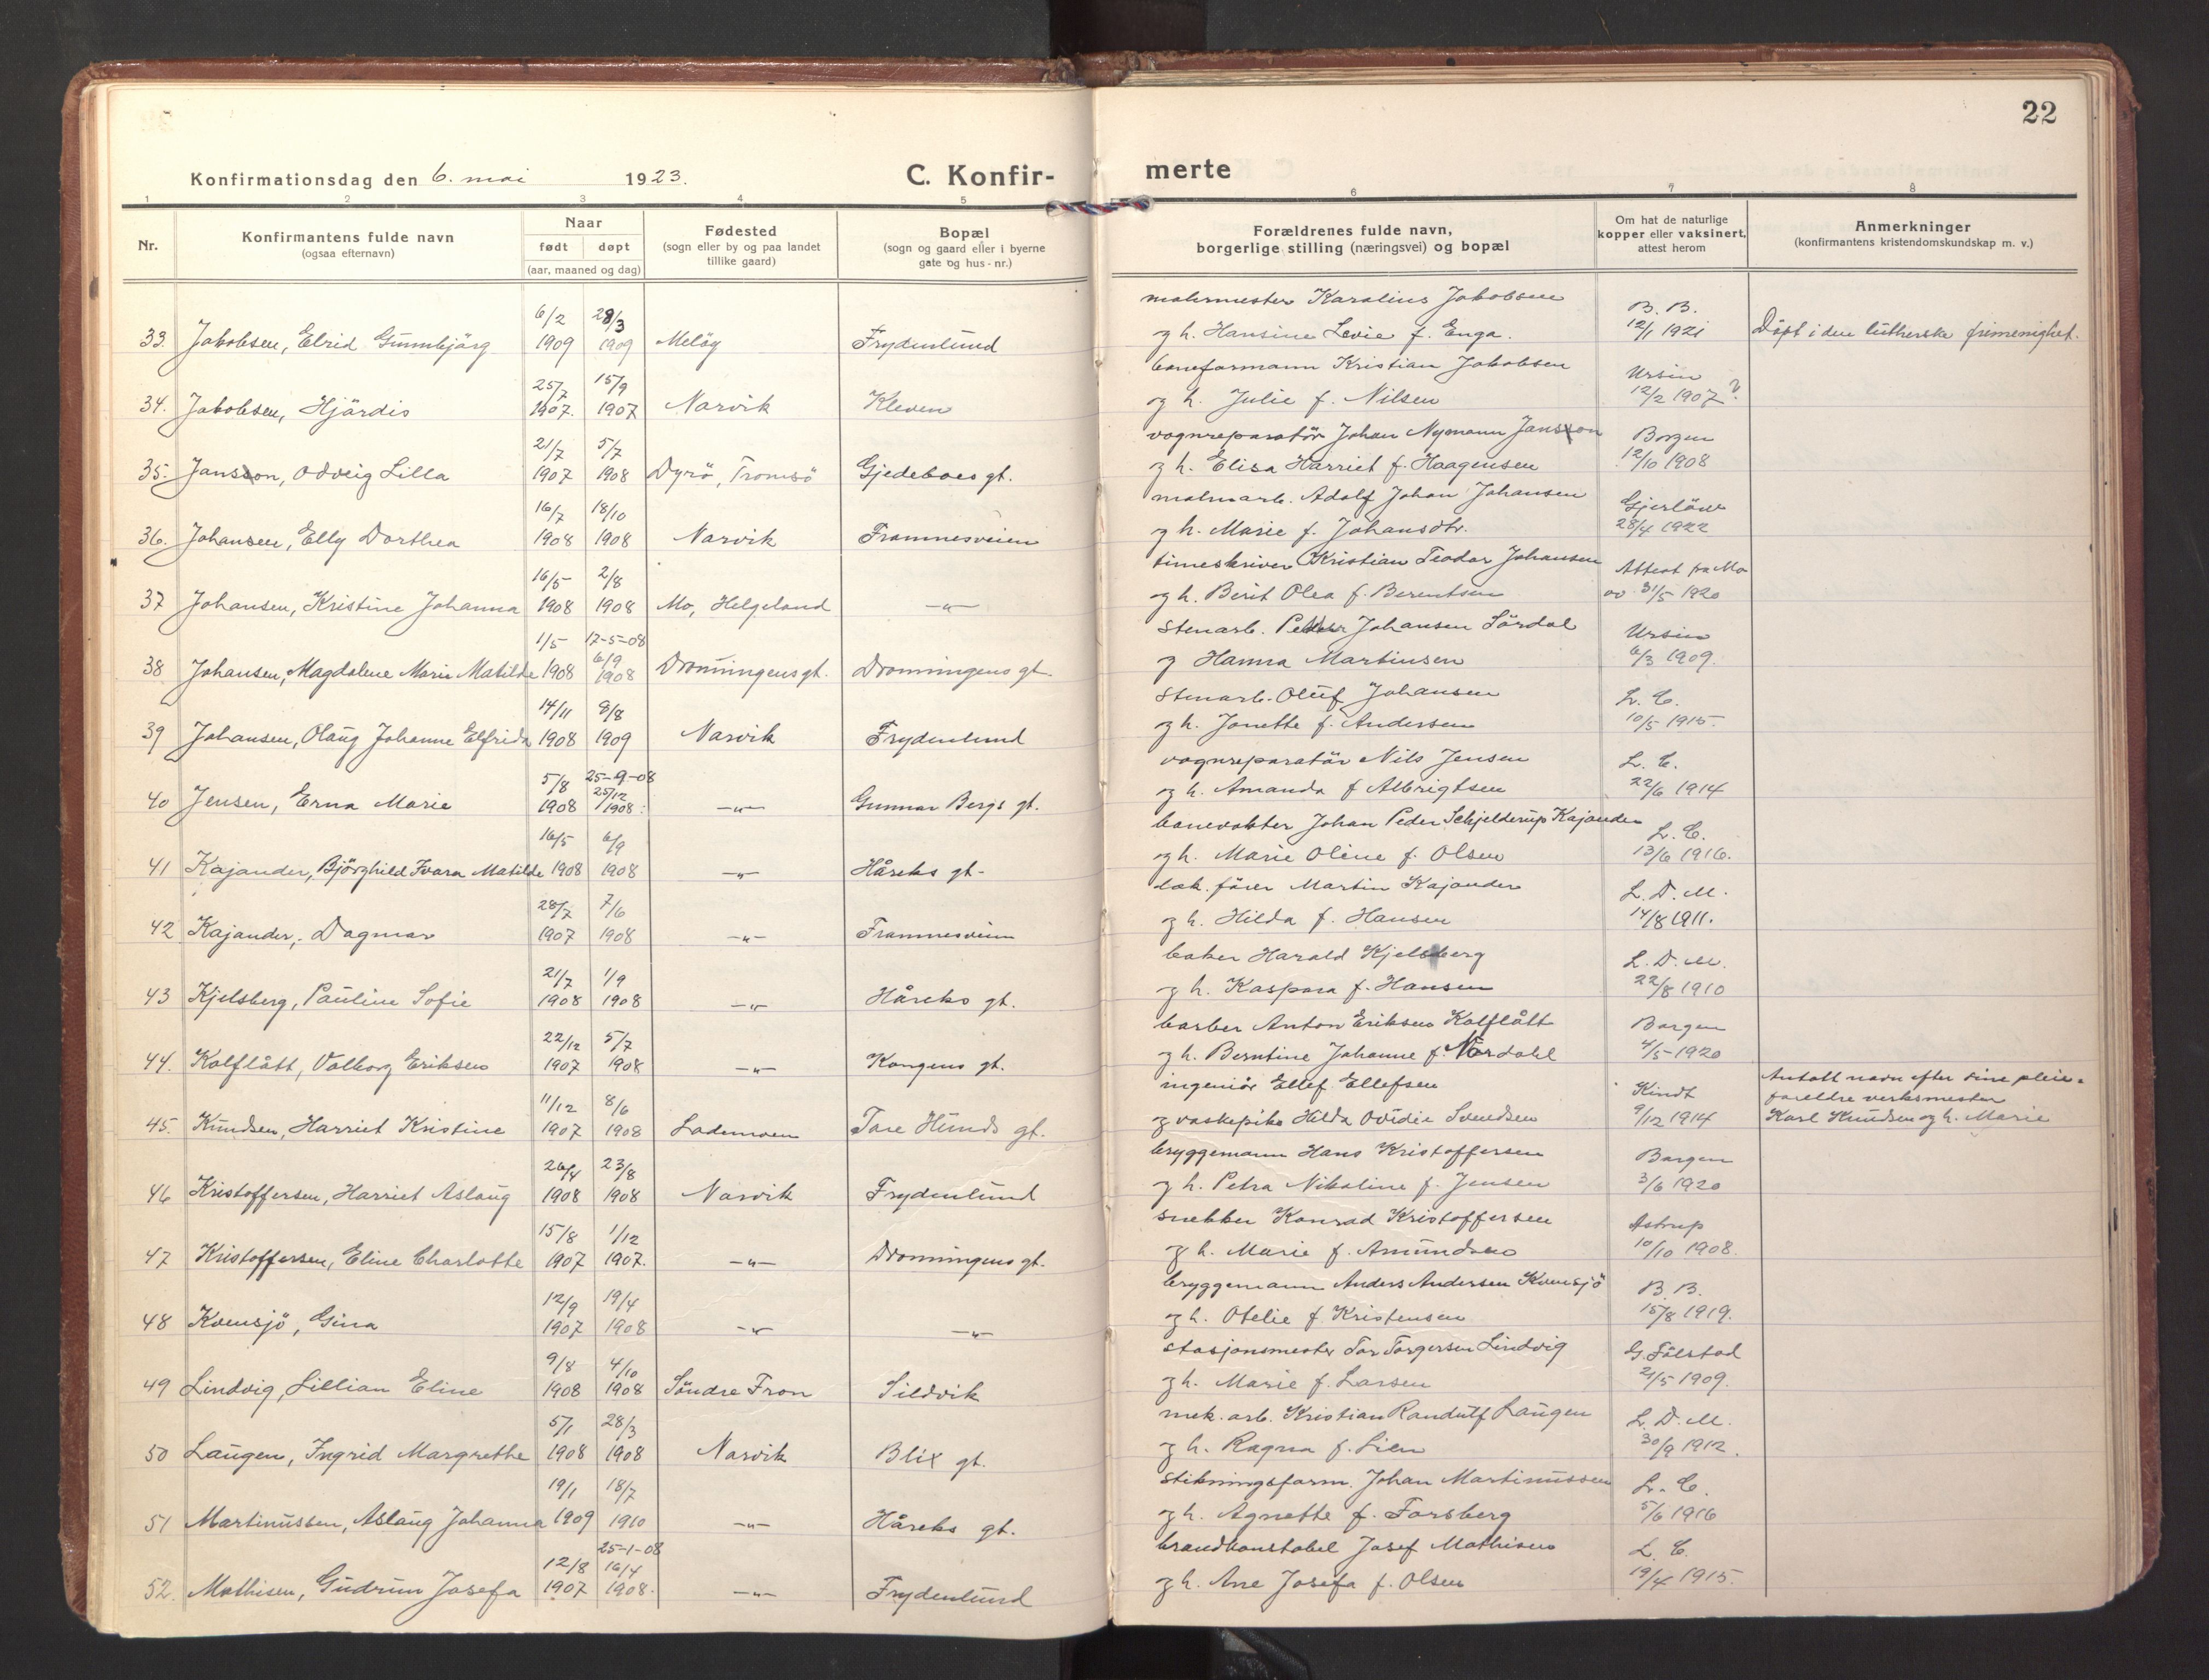 22
Konfirmationsdag den 6. mai 1923.
C. Konfir-
merte
1 2 3 4 5 6 7 8
Nr.
Konfirmantens fulde navn
(ogsaa efternavn)
Naar
født døpt
(aar, maaned og dag)
Fødested
(sogn eller by og paa landet
tillike gaard)
Bopæl
(sogn og gaard eller i byerne
gate og hus-nr.)
Forældrenes fulde navn,
borgerlige stilling (næringsvei) og bopæl
Om hat de naturlige
kopper eller vaksinert,
attest herom
Anmerkninger
(konfirmantens kristendomskundskap m. v.)
6/2 28/3 malermester Karolius Jakobsen B. B.
33. Jakobsen, Elrid Gunnbjörg 1909 1909 Melöy Frydenlund og h. Hansine Levie f. Enga. 12/1 1921 Döpt i den lutherske frimenighet.
25/7 15/9 baneformann Kristian Jakobsen Ursin
34. Jakobsen, Hjördis 1907. 1907 Narvik Kleven og h. Julie f. Nilsen 12/2 1907?
21/7 5/7 vognreparatör Johan Nymann Jansson Borgen
35. Jansson, Odveig Lilla 1907 1908 Dyrö, Tromsö Gjedeboes gt. og h. Elisa Harriet f. Haagensen 12/10 1908
16/7 18/10 malmarb. Adolf Johan Johansen Gjerlöw
36. Johansen, Elly Dorthea 1908 1908 Narvik Framnesveien og h. Marie f. Johansdtr. 28/4 1922
16/5 2/8 timeskriver Kristian Teodor Johansen Attest fra Mo
37 Johansen, Kristine Johanna 1908 1908 Mo, Helgeland —"— og h. Berit Olea f. Berentsen av 31/5 1920
1/5 17-5-08 Stenarb. Peder Johansen Sördal Ursin
38 Johansen, Magdalene Marie Matilde 1908 6/9 1908 Dronningens gt. Dronningens gt. og Hanna Martinsen 6/3 1909.
14/11 8/8 Stenarb. Oluf Johansen L. C.
39 Johansen, Olaug Johanne Elfrida 1908 1909 Narvik Frydenlund og h. Jonette f. Andersen 10/5 1915.
5/8 25-9-08 vognreparatör Nils Jensen L. C.
40 Jensen, Erna Marie 1908 25/12 1908. —"— Gunnar Bergs gt. og h. Amanda f. Albrigtsen 22/6 1914
16/5 6/9 banevokter Johan Peder Schjelderup Kajander L. C.
41 Kajander, Björghild Ivara Matilde 1908 1908 —"— Håreks gt. og h. Marie Oline f. Olsen 13/6 1916.
28/7 7/6 lok. fører Martin Kajander L. D. M.
42 Kajander, Dagmar 1907 1908 —"— Framnesveien og h. Hilda f. Hansen 14/8 1911.
21/7 1/9 baker Harald Kjelsberg L. D. M.
43 Kjelsberg, Pauline Sofie 1908 1908 —"— Håreks gt. og h. Kaspara f. Hansen 22/8 1910
22/12 5/7 barber Anton Eriksen Kolflått Borgen
44. Kolflått, Valborg Eriksen 1907 1908 —"— Kongens gt. og h. Berntine Johanne f. Nordahl 4/5 1920
11/12 8/6 ingeniör Ellef Ellefsen Kindt Antatt navn efter sine pleie-
foreldre verksmester
45. Knudsen, Harriet Kristine 1907 1908 Lademoen Tore Hunds gt. og vaskepike Hilda Ovidie Svendsen 9/12 1914 Karl Knudsen og h. Marie
26/4 23/8 bryggemann Hans Kristoffersen Borgen
46 Kristoffersen, Harriet Aslaug 1908 1908 Narvik Frydenlund og h. Petra Nikoline f. Jensen 3/6 1920
15/8 1/12 snekker Konrad Kristoffersen Astrup
47 Kristoffersen, Eline Charlotte 1907 1907. —"— Dronningens gt. og h. Marie f. Amundsen 10/10 1908.
12/9 19/4 bryggemann Anders Andersen Kvensjö B. B.
48 Kvensjö, Gina 1907 1908 —"— —"— og h. Otelie f. Kristensen 15/8 1919.
9/8 4/10 stasjonsmester Tor Torgersen Lindvig G. Fölstad
49 Lindvig, Lillian Eline 1908 1908 Söndre Fron Sildvik og h. Marie f. Larsen 21/5 1909.
5/1 28/3 mek. arb. Kristian Randulf Laugen L. D. M.
50 Laugen, Ingrid Margrethe 1908 1908 Narvik Blix gt. og h. Ragna f. Lien 30/9 1912.
19/1 18/7 Stikningsform. Johan Martinussen L. C.
51 Martinussen, Aslaug Johanna 1909 1910 —"— Håreks gt. og h. Agnette f. Forsberg 5/6 1916
12/8 25-1-08 brandkonstabel Josef Mathisen L. C.
52. Mathisen, Gudrun Josefa 1907 16/4 1908. —"— Frydenlund og h. Ane Josefa f. Olsen 19/4 1915.